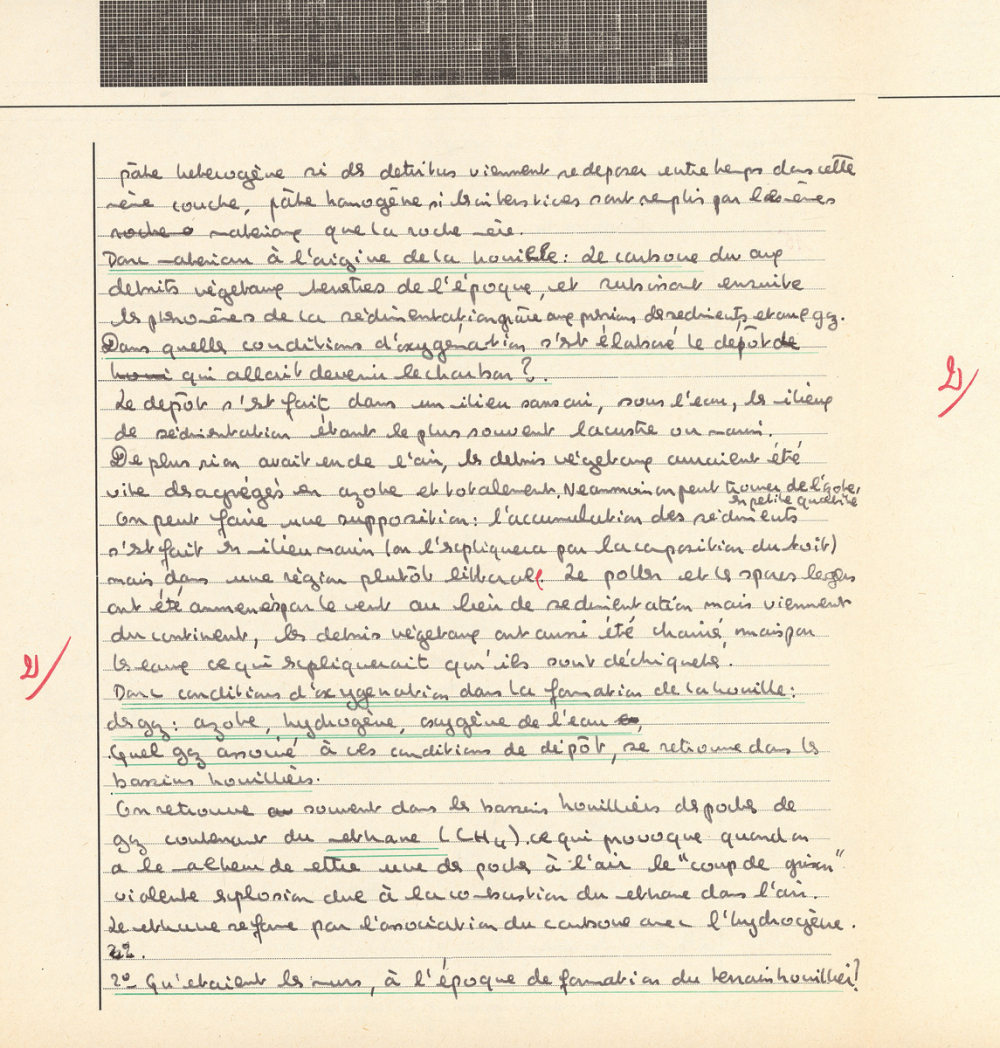 pâte heterogène si des detritus viennent se deposer entre temps dans cette
même couche, pâte homogène si les interstices sont remplis par les mêmes
roche materiaux que la roche mère.
Donc materiau à l'origine de la houille : Le carbone du aux
debrits végetaux terrestres de l'époque, et subissant ensuite
les phenomènes de la sédimentation grâce aux pressions des sediments et aux gz.
Dans quelles conditions d'oxygenation s'est élaboré le dépôt de
houi qui allait devenir le charbon ?.
Le depôt s'est fait dans un milieu sans air, sous l'eau, les milieux
de sédimentation étant le plus souvent lacustre ou marin.
De plus si on avait eu de l'air, les debris végetaux auraient été
vite desagrégés en azote et totalement. Neanmoins on peut trouver de l'azote,
en petite quantité
On peut faire une supposition : l'accumulation des sédiments
s'est fait en milieu marin (on l'expliquera par la composition du toit)
mais dans une région plutôt littorale. Le pollen et les spores legers
ont été ammenés par le vent au lieu de sedimentation mais viennent
du continent, les debris végetaux ont aussi été charrié, mais par
les eaux ce qui expliquerait qu'ils sont déchiquetés.
Donc conditions d'oxygenation dans la formation de la houille :
des gz : azote, hydrogène, oxygène de l'eau
Quel gz associé à ces conditions de dépôt, se retrouve dans les
bassins houilliers.
On retrouve souvent dans les bassins houilliers des poches de
gz contenant du methane (CH4). ce qui provoque quand on
a le malheur de mettre une des poches à l'air le "coup de grisou"
violente explosion due à la combustion du methane dans l'air.
Le methane se forme par l'association du carbone avec l'hydrogène.
2º.
2º Qu'etaient les murs, à l'époque de formation du terrain houiller ?